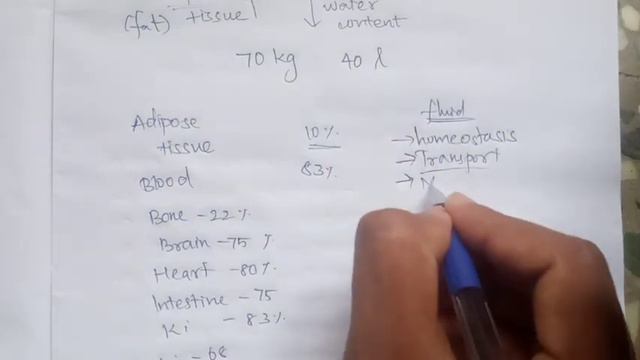 (fat) tissue ↓ water
content
70 kg 40 l
Adipose
tissue 10%
Blood 83%
Bone - 22%
Brain - 75 %
Heart - 80%
Intestine - 75
Ki - 83%
Li - 68
fluid
→ homeostasis
→ Transport
→